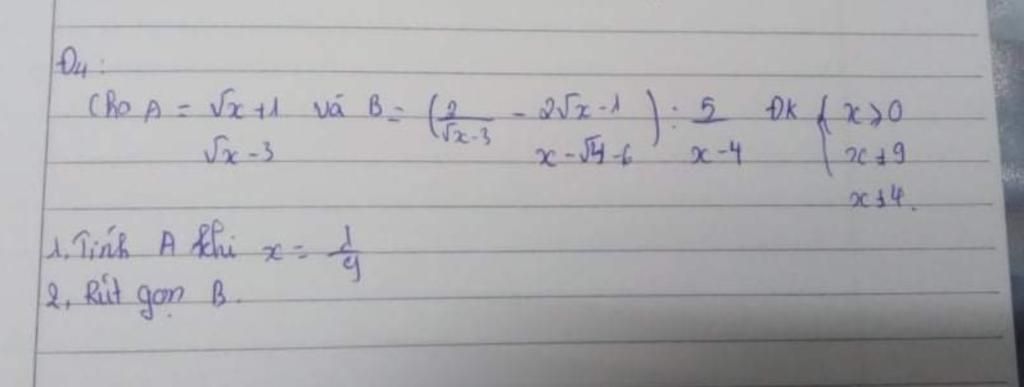 Đ4:
Cho A = √x+1 / √x-3 và B = (2 / √x-3 - 2√x-1 / x-√4-6) : 5 / x-4 ĐK { x≥0
x≠9
x≠4.
1. Tính A khi x = 1/9
2, Rút gọn B.